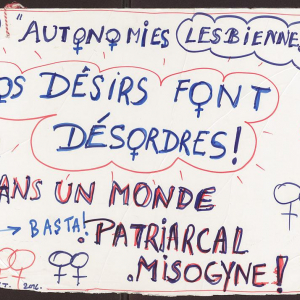 " AUTONOMIES LESBIENNE
OS DÉSIRS FONT
DÉSORDRES!
ANS UN MONDE
→ BASTA! PATRIARCAL
MISOGYNE!
T. 2016.